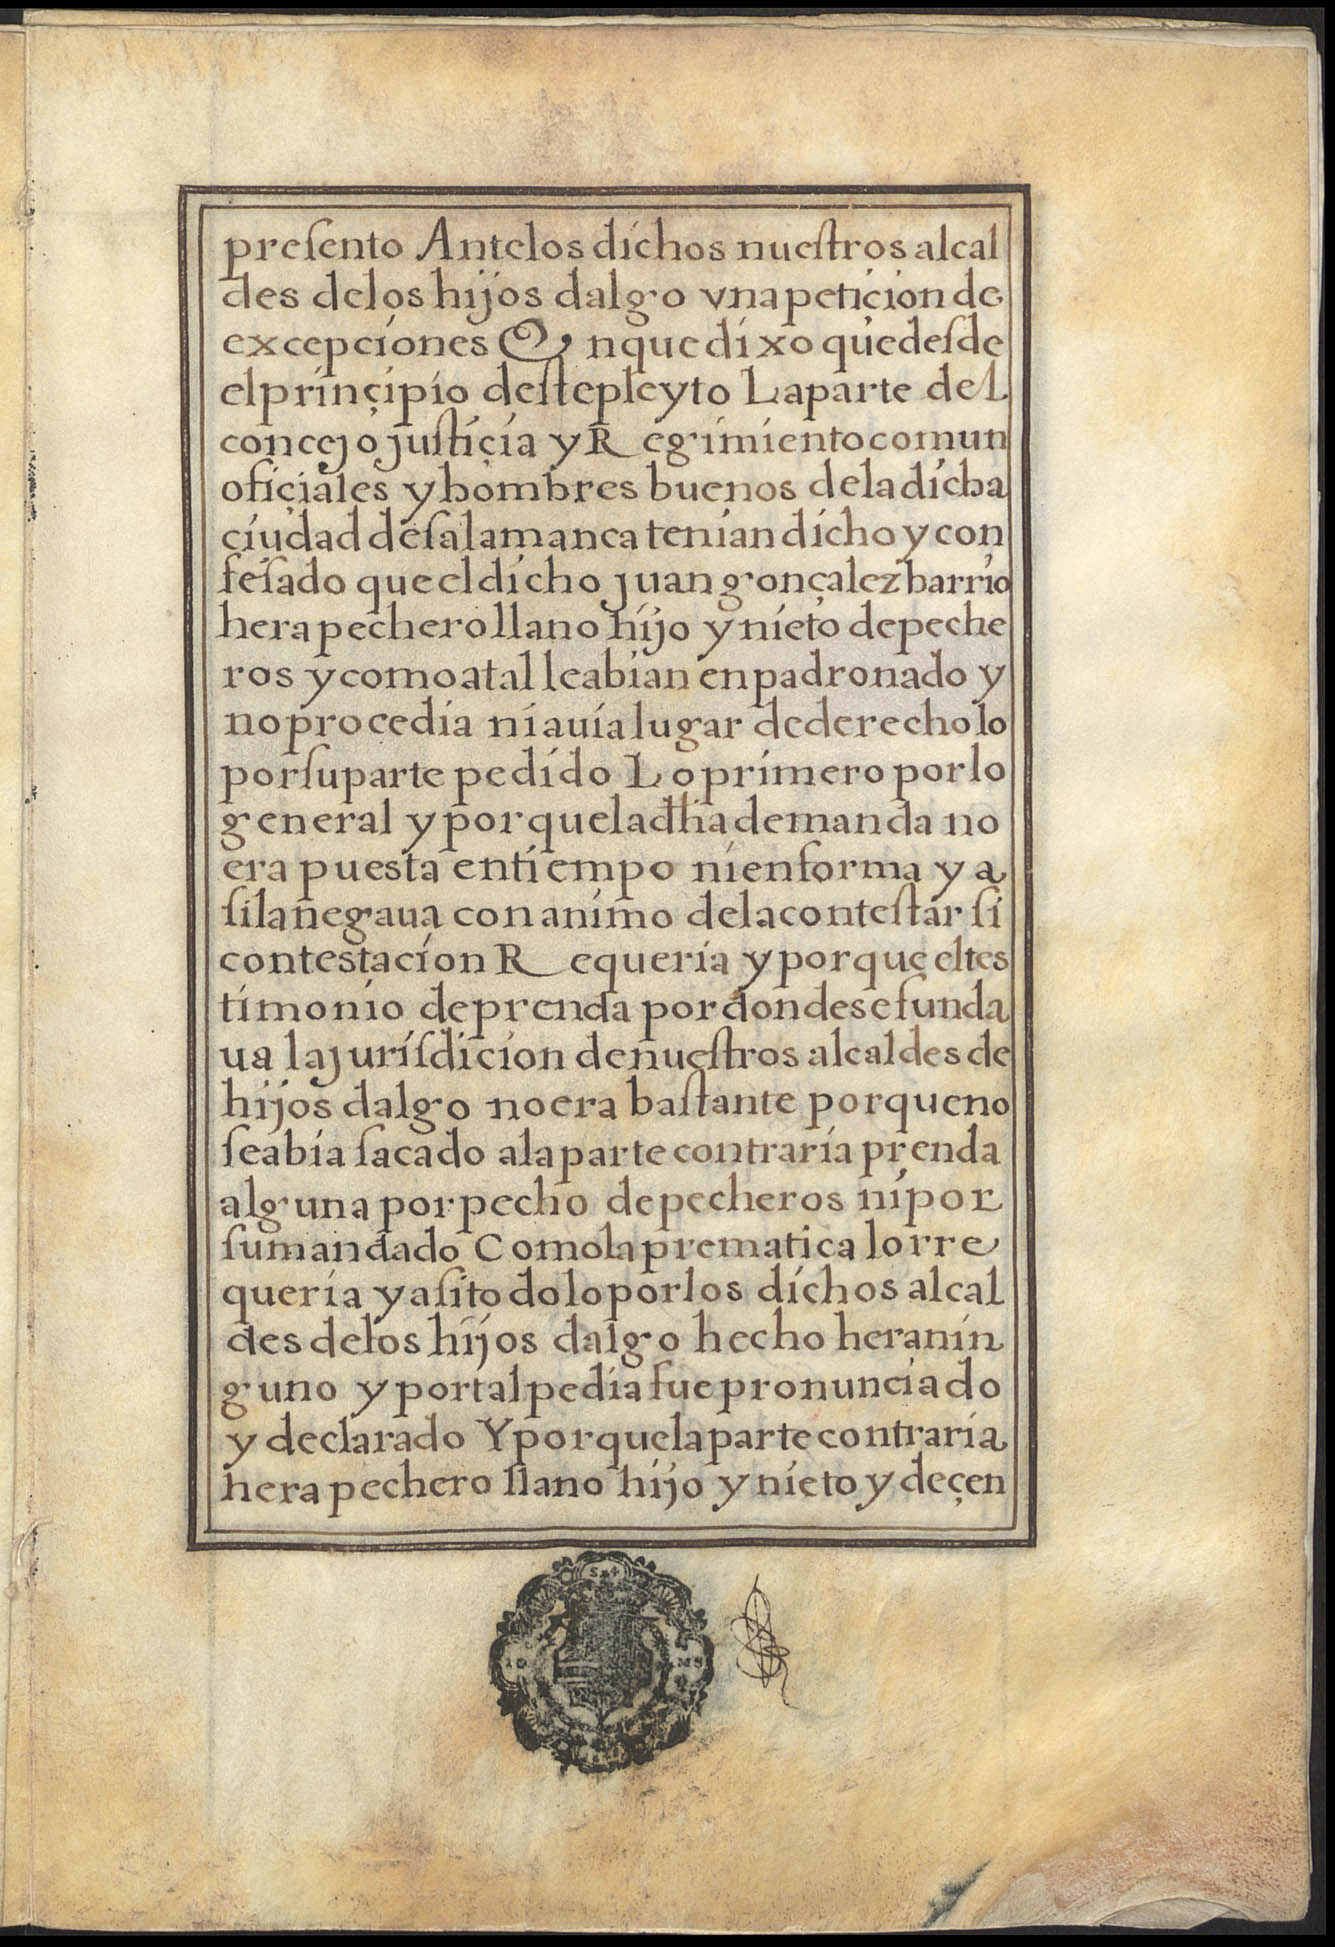 presento Antelos dichos nuestros alcal
des delos hijos dalgo vna petiçion de
excepçiones En que dixo que desde
el prinçipio deste pleyto La parte del
concejo justiçia y Regimiento comun
ofiçiales y hombres buenos dela dicha
çiudad de salamanca tenian dicho y con
fesado que el dicho juan gonçalez barrio
hera pechero llano hijo y nieto de peche
ros y como atal le abian enpadronado y
no procedia ni auia lugar de derecho lo
por su parte pedido Lo primero por lo
general y por que la dha demanda no
era puesta en tiempo ni en forma y a
si la negaua con animo de la contestar si
contestaçion Requeria y por que el tes
timonio de prenda por donde se funda
ua la jurisdicion de nuestros alcaldes de
hijos dalgo no era bastante porque no
se abia sacado ala parte contraria prenda
alguna por pecho de pecheros ni por
su mandado Como la prematica lo rre
queria y asi todo lo por los dichos alcal
des delos hijos dalgo hecho hera nin
guno y por tal pedia fue pronunciado
y declarado Y porque la parte contraria
hera pechero llano hijo y nieto y deçen